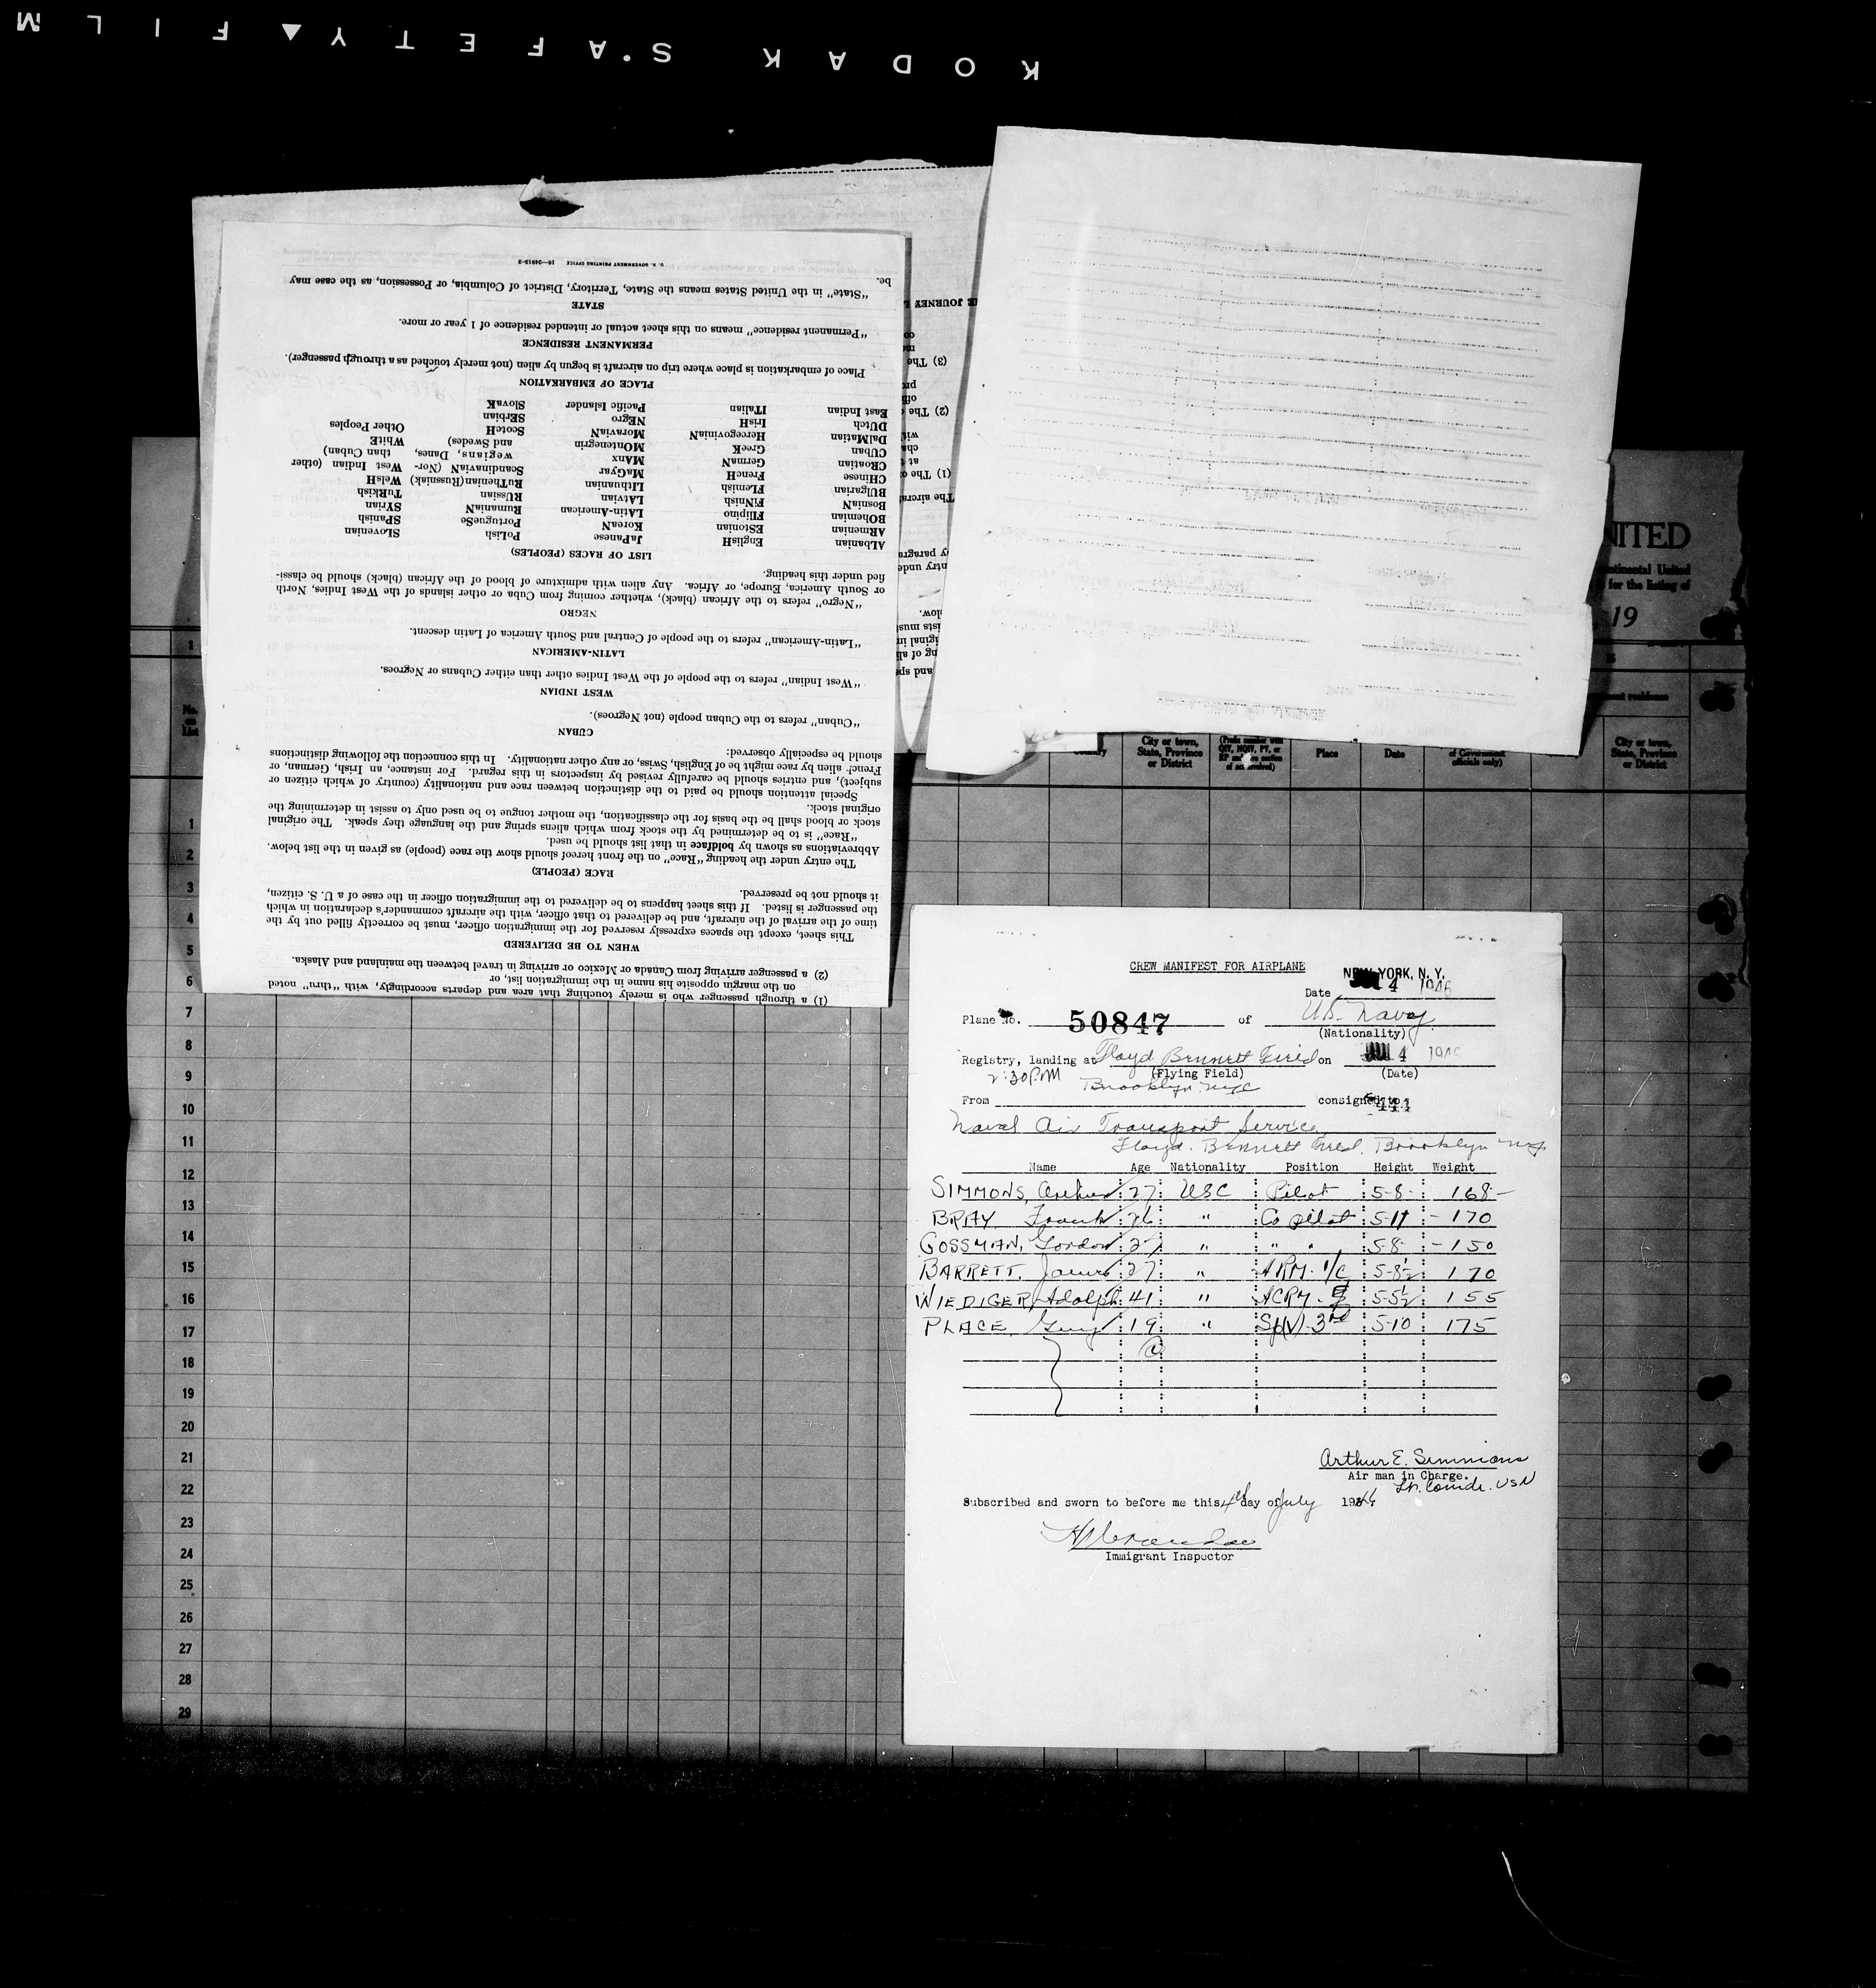 KODAK SAFETY FILM
(1) a through passenger who is merely touching that area and departs accordingly, with "thru" noted
on the margin opposite his name in the immigration list, or
(2) a passenger arriving from Canada or Mexico or arriving in travel between the mainland and Alaska.
WHEN TO BE DELIVERED
This sheet, except the spaces expressly reserved for the immigration officer, must be correctly filled out by the
time of the arrival of the aircraft, and be delivered to that officer, with the aircraft commander's declaration in which
the passenger is listed. If this sheet happens to be delivered to the immigration officer in the case of a U. S. citizen,
it should not be preserved.
RACE (PEOPLE)
The entry under the heading "Race" on the front hereof should show the race (people) as given in the list below.
Abbreviations as shown by boldface in that list should be used.
"Race" is to be determined by the stock from which aliens spring and the language they speak. The original
stock or blood shall be the basis for the classification, the mother tongue to be used only to assist in determining the
original stock.
Special attention should be paid to the distinction between race and nationality (country of which citizen or
subject), and entries should be carefully revised by inspectors in this regard. For instance, an Irish, German, or
French alien by race might be of English, Swiss, or any other nationality. In this connection the following distinctions
should be especially observed:
CUBAN
"Cuban" refers to the Cuban people (not Negroes).
WEST INDIAN
"West Indian" refers to the people of the West Indies other than either Cubans or Negroes.
LATIN-AMERICAN
"Latin-American" refers to the people of Central and South America of Latin descent.
NEGRO
"Negro" refers to the African (black), whether coming from Cuba or other islands of the West Indies, North
or South America, Europe, or Africa. Any alien with admixture of blood of the African (black) should be classi-
fied under this heading.
LIST OF RACES (PEOPLES)
ALbanian EnglisH JaPanese PoLish SLOvenian
ARmenian EStonian KoreaN PortugueSe SPanish
BOhemian FIlipino LAtin-American RumaniaN SYrian
BosniaN FiNnish LAtvian RUssian TuRkish
BUlgarian FLemish LIthuanian RuThenian (Russniak) WelsH
CHinese FrencH MaGyar ScandinaviaN (Nor- West Indian (other
CROatian GermaN MAnx wegians, Danes, than Cuban)
CUBan GreeK MOntenegrin and Swedes) WhitE
DalMatian HercegoviniaN MoraviaN ScotcH Other Peoples
DUTch IrisH NEgro SErbian
East Indian ITalian Pacific Islander SlovaK
PLACE OF EMBARKATION
Place of embarkation is place where trip on aircraft is begun by alien (not merely touched as a through passenger).
PERMANENT RESIDENCE
"Permanent residence" means on this sheet actual or intended residence of 1 year or more.
STATE
"State" in the United States means the State, Territory, District of Columbia, or Possession, as the case may
be.
U. S. GOVERNMENT PRINTING OFFICE 16—24915-2
NITED
for the listing of
19
No. on List
City or town, State, Province or District
Place
Date
officials only)
City or town, State, Province or District
1
2
3
4
5
6
7
8
9
10
11
12
13
14
15
16
17
18
19
20
21
22
23
24
25
26
27
28
29
CREW MANIFEST FOR AIRPLANE
NEW YORK, N. Y.
Date JUL 4 1946
Plane No. 50847 of U.S. Navy
(Nationality)
Registry, landing at Floyd Bennett Field on JUL 4 1946
2:30 P.M (Flying Field) (Date)
Brooklyn NYC
From consigned to
Naval Air Transport Service
Floyd Bennett Field, Brooklyn NY
Name Age Nationality Position Height Weight
SIMMONS, Arthur 27 USC Pilot 5-8 168
BRAY Frank 26 " Co pilot 5-11 170
GOSSMAN, Gordon 27 " " " 5-8 150
BARRETT, James 27 " ARM 1/C 5-8½ 170
WIEDIGER, Adolph 41 " ACRM 5-5½ 155
PLACE, Guy 19 " Sp(V) 3rd 5-10 175
Arthur E. Simmons
Air man in Charge.
Lt. Comdr. USN
Subscribed and sworn to before me this 4th day of July 1946
Immigrant Inspector